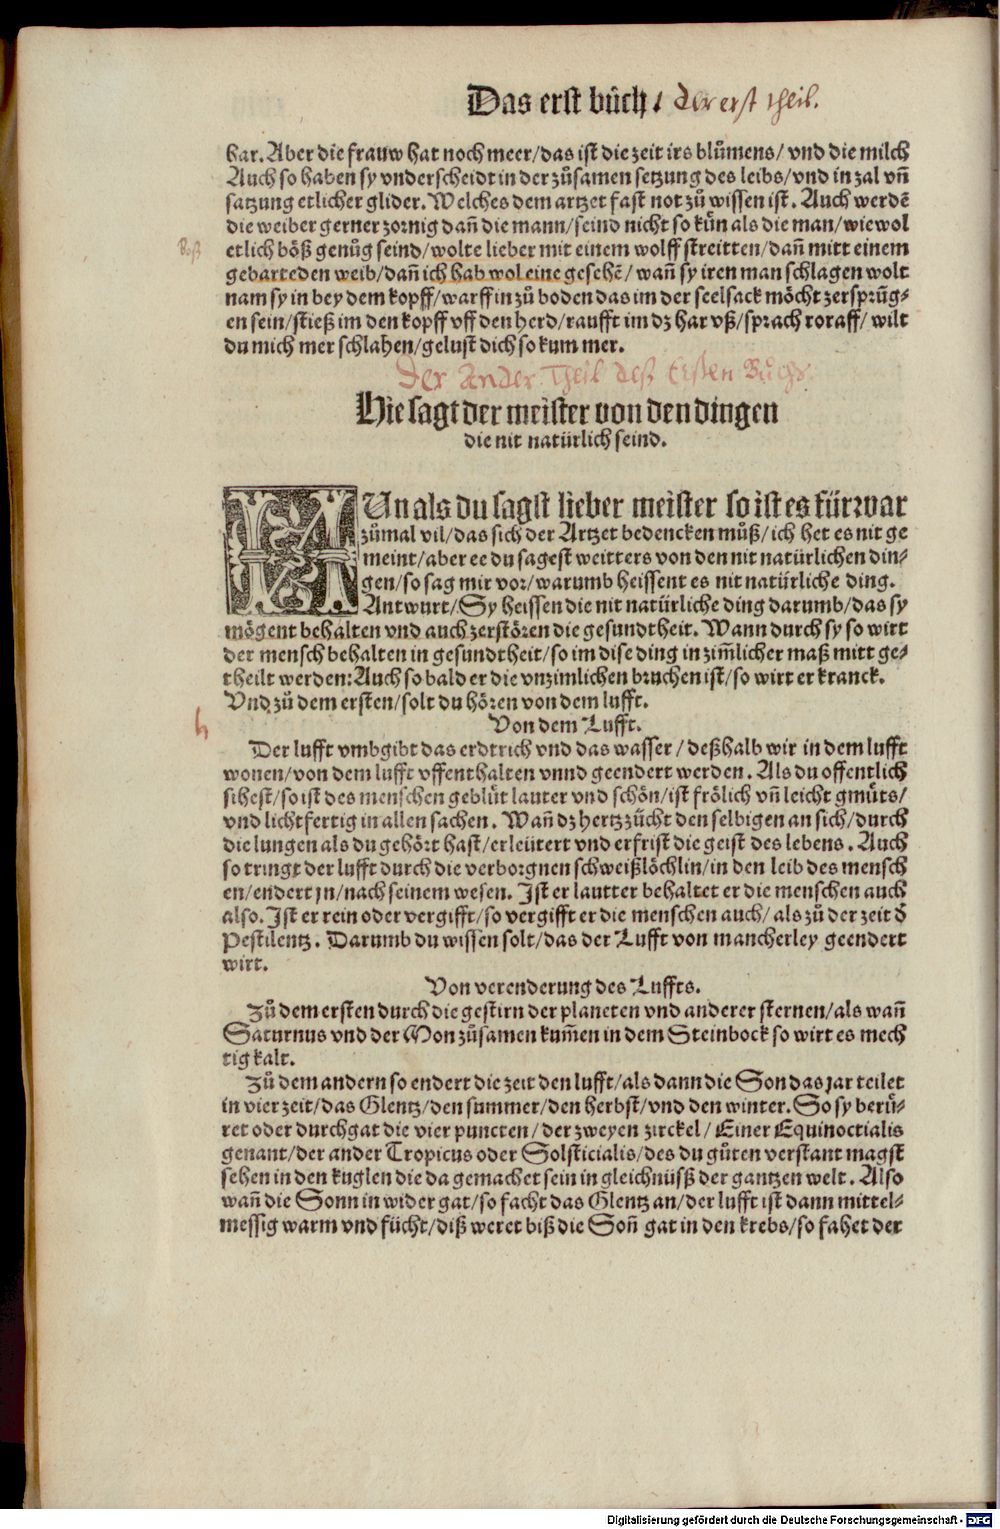 Das erst bůch / der erst theil.
har. Aber die frauw hat noch meer/das ist die zeit irs blůmens/ vnd die milch
Auch so haben sy vnderscheidt in der zůsamen setzung des leibs/vnd in zal vñ
satzung etlicher glider. Welches dem artzet fast not zů wissen ist. Auch werdē
die weiber gerner zornig dañ die mann/seind nicht so kün als die man/wiewol
Böß
etlich böß genůg seind/wolte lieber mit einem wolff streitten/dañ mitt einem
gebarteden weib/dañ ich hab wol eine gesehē/ wañ sy iren man schlagen wolt
nam sy in bey dem kopff/warff in zů boden das im der seelsack möcht zersprūg⸗
en sein/stieß im den kopff vff den herd/raufft im dz har vß/sprach roraff/ wilt
du mich mer schlahen/gelust dich so kum mer.
Der Ander Theil deß Ersten Buchs.
Hie sagt der meister von den dingen
die nit natürlich seind.
NUn als du sagst lieber meister so ist es fürwar
zůmal vil/das sich der Artzet bedencken můß/ich het es nit ge
meint/aber ee du sagest weitters von den nit natürlichen din⸗
gen/so sag mir vor/warumb heissent es nit natürliche ding.
Antwurt/Sy heissen die nit natürliche ding darumb/das sy
mögent behalten vnd auch zerstören die gesundtheit. Wann durch sy so wirt
der mensch behalten in gesundtheit/so im dise ding in zim̃licher maß mitt ge⸗
theilt werden: Auch so bald er die vnzimlichen bruchen ist/so wirt er kranck.
Vnd zů dem ersten/solt du hören von dem lufft.
Von dem Lufft.
Der lufft vmbgibt das erdtrich vnd das wasser / deßhalb wir in dem lufft
wonen/von dem lufft vffenthalten vnnd geendert werden. Als du offentlich
sihest/so ist des menschen geblůt lauter vnd schön/ist frölich vñ leicht gmůts/
vnd lichtfertig in allen sachen. Wañ dz hertz zücht den selbigen an sich/durch
die lungen als du gehört hast/erleütert vnd erfrist die geist des lebens. Auch
so tringt der lufft durch die verborgnen schweißlöchlin/in den leib des mensch
en/endert jn/nach seinem wesen. Ist er lautter behaltet er die menschen auch
also. Ist er rein oder vergifft/so vergifft er die menschen auch/ als zů der zeit d̓
Pestilentz. Darumb du wissen solt/das der Lufft von mancherley geendert
wirt.
Von verenderung des Luffts.
Zů dem ersten durch die gestirn der planeten vnd anderer sternen/als wañ
Saturnus vnd der Mon zůsamen kum̃en in dem Steinbock so wirt es mech
tig kalt.
Zů dem andern so endert die zeit den lufft/als dann die Son das jar teilet
in vier zeit/das Glentz/den summer/den herbst/vnd den winter. So sy berü⸗
ret oder durchgat die vier puncten/der zweyen zirckel/ Einer Equinoctialis
genant/der ander Tropicus oder Solsticialis/des du gůten verstant magst
sehen in den kuglen die da gemachet sein in gleichnüsß der gantzen welt. Also
wañ die Sonn in wider gat/so facht das Glentz an/der lufft ist dann mittel⸗
messig warm vnd fücht/diß weret biß die Soñ gat in den krebs/so fahet der
Digitalisierung gefördert durch die Deutsche Forschungsgemeinschaft - DFG